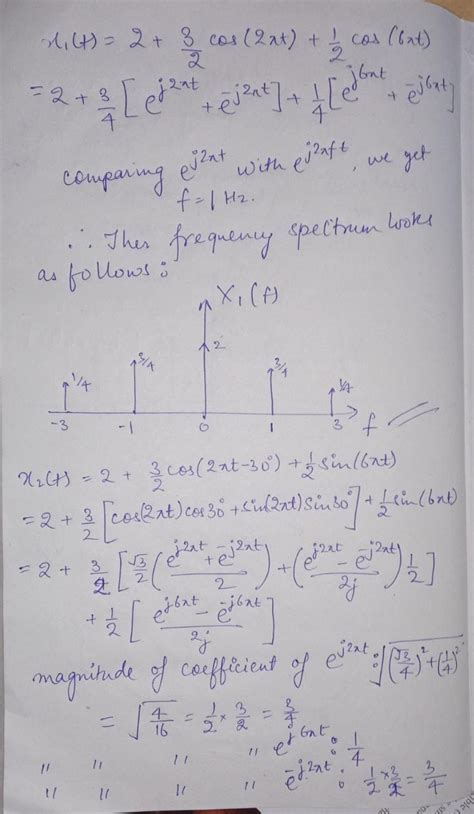 x₁(t) = 2 + 3/2 cos(2πt) + 1/2 cos(6πt)
= 2 + 3/4 [e^{j2πt} + e^{-j2πt}] + 1/4 [e^{j6πt} + e^{-j6πt}]
comparing e^{j2πt} with e^{j2πft}, we get
f = 1 Hz.
∴ Ther frequency spectrum looks
as follows :
X₁(f)
2
1/4 3/4 3/4 1/4
-3 -1 0 1 3 f
x₂(t) = 2 + 3/2 cos(2πt-30°) + 1/2 sin(6πt)
= 2 + 3/2 [cos(2πt) cos30° + sin(2πt) sin30°] + 1/2 sin(6πt)
= 2 + 3/2 [√3/2 (e^{j2πt} + e^{-j2πt}/2) + (e^{j2πt} - e^{-j2πt}/2j) 1/2]
+ 1/2 [e^{j6πt} - e^{-j6πt}/2j]
magnitude of coefficient of e^{j2πt} : √((√3/4)² + (1/4)²
= √(4/16) = 1/2 × 3/2 = 3/4
" " " " e^{j6πt} : 1/4
" " " " e^{-j2πt} : 1/2 × 3/2 = 3/4